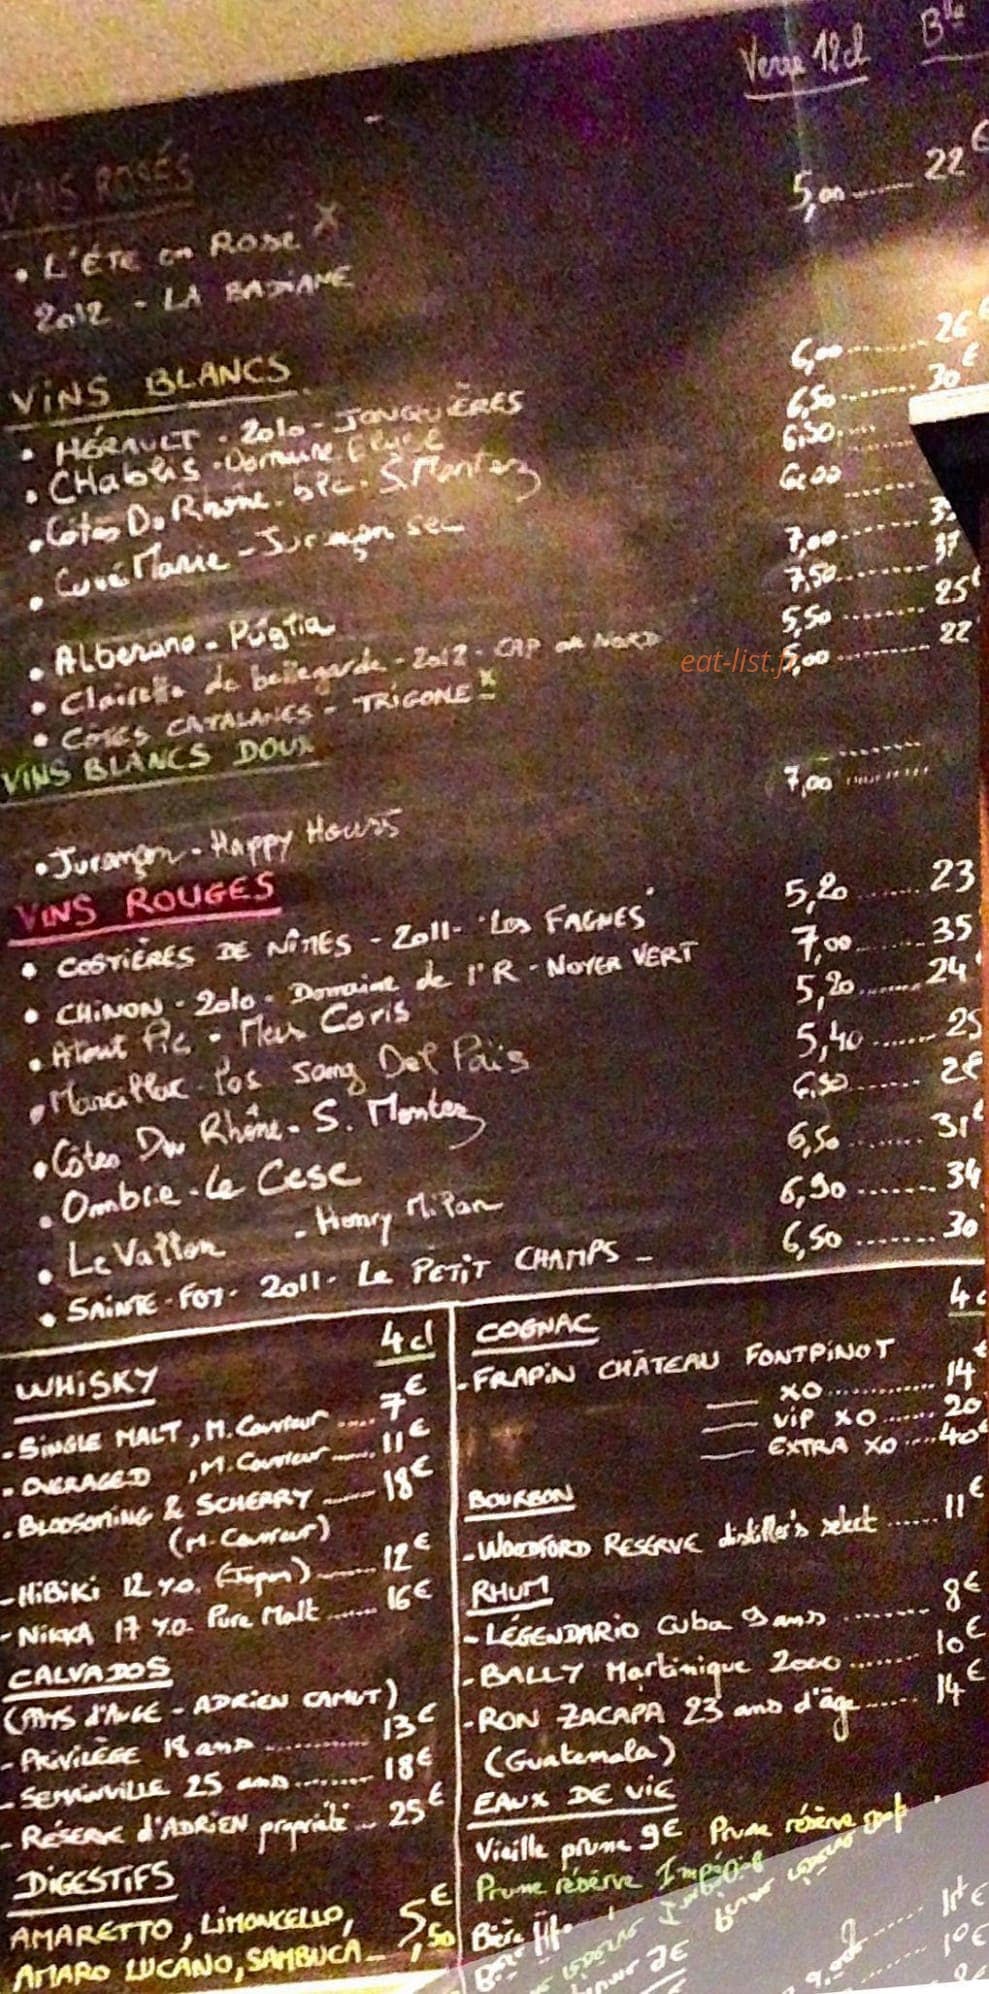 Verre 12cl Blle
VINS ROSÉS
5,00 ...... 22€
• L'ÉTÉ en ROSE X
2012 - LA BADIANE
VINS BLANCS
6,00 ........ 26€
• HÉRAULT - 2010 - JONQUIÈRES
6,50 ........ 30€
• CHABLIS - Domaine
6,50 ....
• Côtes Du Rhône. S. Montez
6,00 ......
• Cuvé Marie - Jurançon sec
7,00 ........
7,50 ........ 37
• Alberano - Puglia
5,50 ........ 25€
• Clairette de bellegarde - 2012 - CAP au NORD
5,00 ........ 22
eat-list.
• CÔTES CATALANES - TRIGONE X
VINS BLANCS DOUX
7,00 ........
• Jurançon - Happy Hours
VINS ROUGES
5,20 ...... 23
• COSTIÈRES DE NÎMES - 2011 - "Les FAGNES"
7,00 ...... 35
• CHINON - 2010 - Domaine de l'R - NOYER VERT
5,20 ...... 24
• Atout Pic - Mas Coris
5,40 ...... 25
• Marcillac - Los Sang Del Païs
6,50 ......
• Côtes Du Rhône - S. Montez
6,50 ...... 31€
• Ombrie - Le Cese
6,90 ...... 34
• Le Vallon - Henry Milan
6,50 ...... 30
• SAINTE-FOY - 2011 - Le PETIT CHAMPS -
4 cl
WHISKY
- SINGLE MALT, M. Couvreur .... 7€
- OVERAGED, M. Couvreur .... 11€
- BLOOSOMING & SCHERRY .... 18€
(M. Couvreur)
- HIBIKI 12 Y.O. (Japon) .... 12€
- NIKKA 17 Y.O. Pure Malt .... 16€
CALVADOS
(PAYS d'AUGE - ADRIEN CAMUT)
- PRIVILÈGE 18 ans .......... 13€
- SEMAINVILLE 25 ans ........ 18€
- RÉSERVE d'ADRIEN propriété .. 25€
DIGESTIFS
AMARETTO, LIMONCELLO,
AMARO LUCANO, SAMBUCA - 5,50€
COGNAC
- FRAPIN CHÂTEAU FONTPINOT
XO .......... 14€
VIP XO ...... 20
EXTRA XO .... 40€
BOURBON
- WOODFORD RESERVE distiller's select ...... 11€
RHUM
- LÉGENDARIO Cuba 9 ans ........ 8€
- BALLY Martinique 2000 ....... 10€
- RON ZACAPA 23 ans d'âge ...... 14€
(Guatemala)
EAUX DE VIE
Vieille prune 9€ Prune réserve
Prune réserve Impériale
Bière